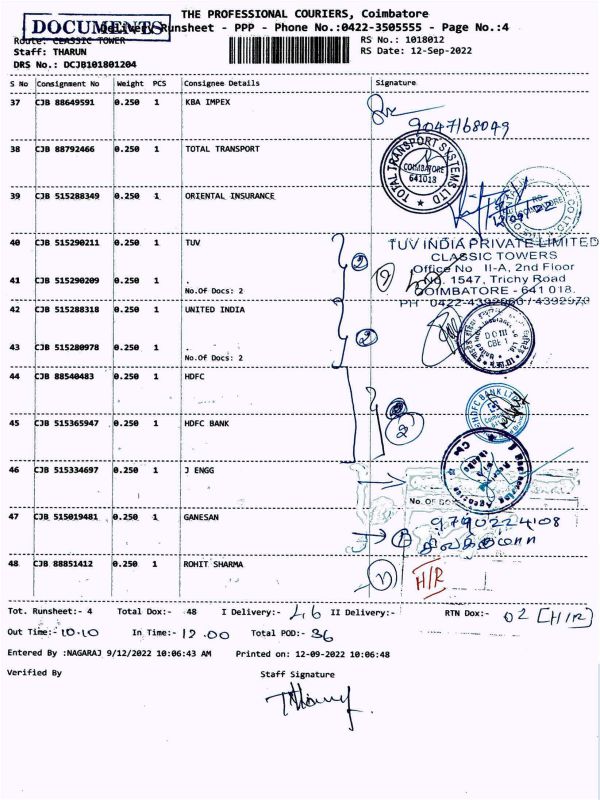 THE PROFESSIONAL COURIERS, Coimbatore
DOCUMENTS
Delivery Runsheet - PPP - Phone No.:0422-3505555 - Page No.:4
Route: CLASSIC TOWER
RS No.: 1018012
Staff: THARUN
RS Date: 12-Sep-2022
DRS No.: DCJB101801204
S No Consignment No Weight PCS Consignee Details Signature
37 CJB 88649591 0.250 1 KBA IMPEX
9047168049
38 CJB 88792466 0.250 1 TOTAL TRANSPORT
TOTAL TRANSPORT SYSTEMS LTD
COIMBATORE
641018
39 CJB 515288349 0.250 1 ORIENTAL INSURANCE
40 CJB 515290211 0.250 1 TUV
2
TUV INDIA PRIVATE LIMITED
CLASSIC TOWERS
Office No II-A, 2nd Floor
No. 1547, Trichy Road
COIMBATORE - 641 018.
41 CJB 515290209 0.250 1 .
No.Of Docs: 2
42 CJB 515288318 0.250 1 UNITED INDIA
2
43 CJB 515280978 0.250 1 .
No.Of Docs: 2
44 CJB 88540483 0.250 1 HDFC
HDFC BANK LTD
2
45 CJB 515365947 0.250 1 HDFC BANK
46 CJB 515334697 0.250 1 J ENGG
47 CJB 515019481 0.250 1 GANESAN
9790224108
48 CJB 88851412 0.250 1 ROHIT SHARMA
H/R
Tot. Runsheet:- 4 Total Dox:- 48 I Delivery:- 46 II Delivery:- RTN Dox:- 02 [H/R]
Out Time:- 10.10 In Time:- 12.00 Total POD:- 36
Entered By :NAGARAJ 9/12/2022 10:06:43 AM Printed on: 12-09-2022 10:06:48
Verified By Staff Signature